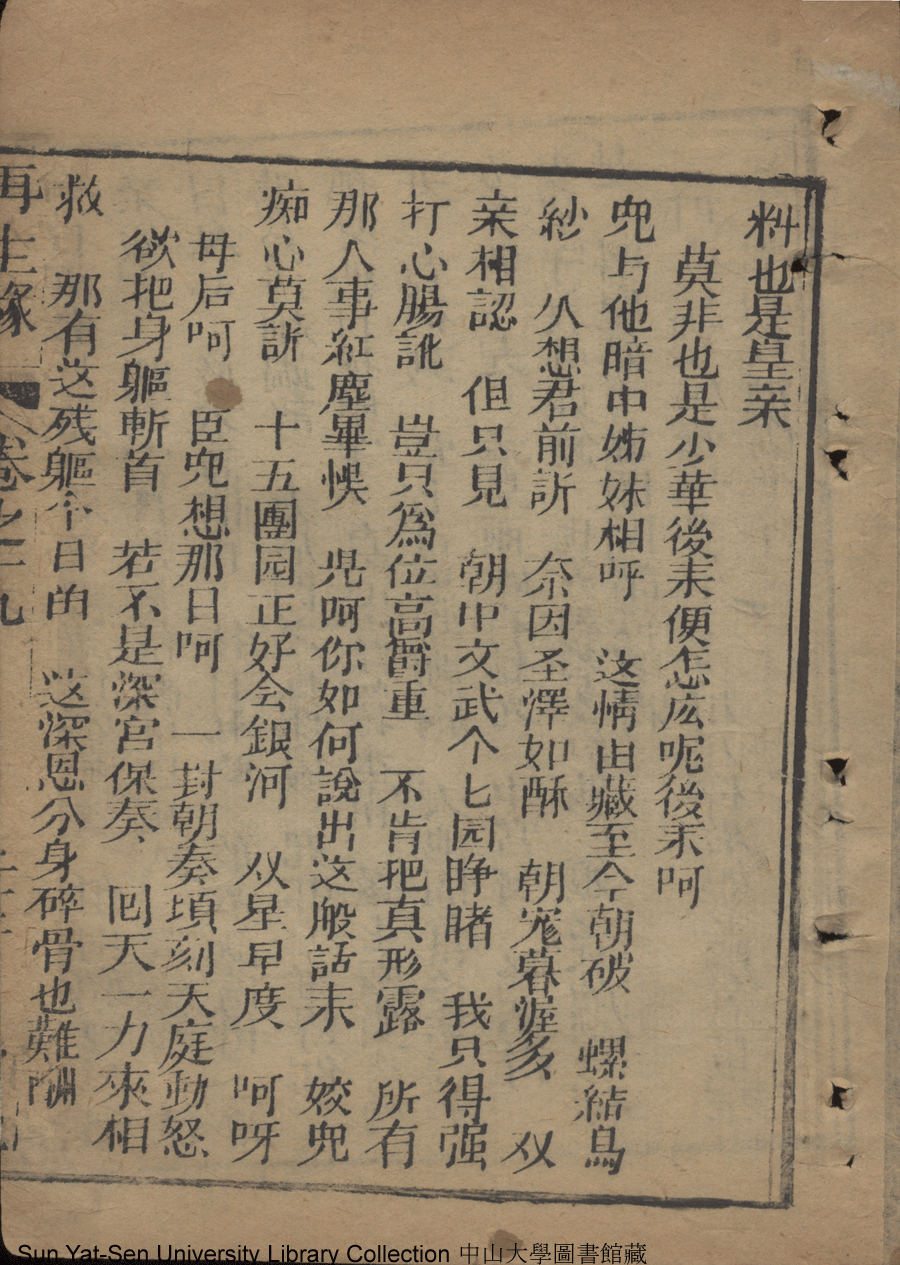 料也是皇亲
莫非也是少華後耒便怎庅呢後耒呵
兜与他暗中姊妹相呼 这情由藏至今朝破 螺結鳥
紗 久想君前訴 奈因圣澤如酥 朝寃暮渥多 双
亲相認 但只見 朝中文武个匕园睁睹 我只得强
打心腸訛 豈只為位高爵重 不肯把真形露 所有
那人事紅塵畢悞 児呵你如何說出这般話耒 姣兜
痴心莫訴 十五團园正好会銀河 双星早度 呵呀
母后呵 臣兜想那日呵 一封朝奏頃刻天庭動怒
欲把身軀斬首 若不是深宮保奏 囬天一力來相
救 那有这残軀个日的 这深恩分身碎骨也難酬
再生緣 卷之二九
Sun Yat-Sen University Library Collection 中山大學圖書館藏